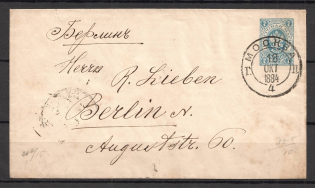 Берлинъ
7
МОСКВА
18
ОКТ
1884
4
Herrn R. Lieben
Berlin N.
Auguststr. 60.